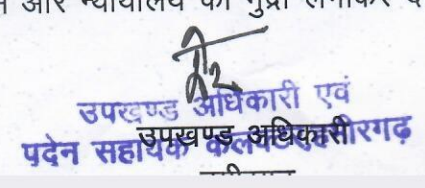 और न्यायालय की मुद्रा लगाकर
उपखण्ड अधिकारी एवं
उपखण्ड अधिकारी
पदेन सहायक कलक्टर